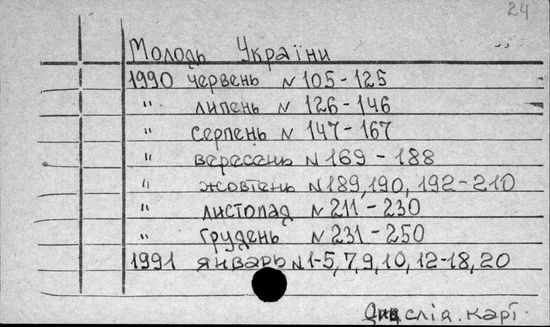 24
Молодь України
1990 червень N 105-125
" липень N 126-146
" серпень N 147-167
" вересень N 169-188
" жовтень N 189, 190, 192-210
" листопад N 211-230
" грудень N 231-250
1991 январь N 1-5, 7, 9, 10, 12-18, 20
карт.